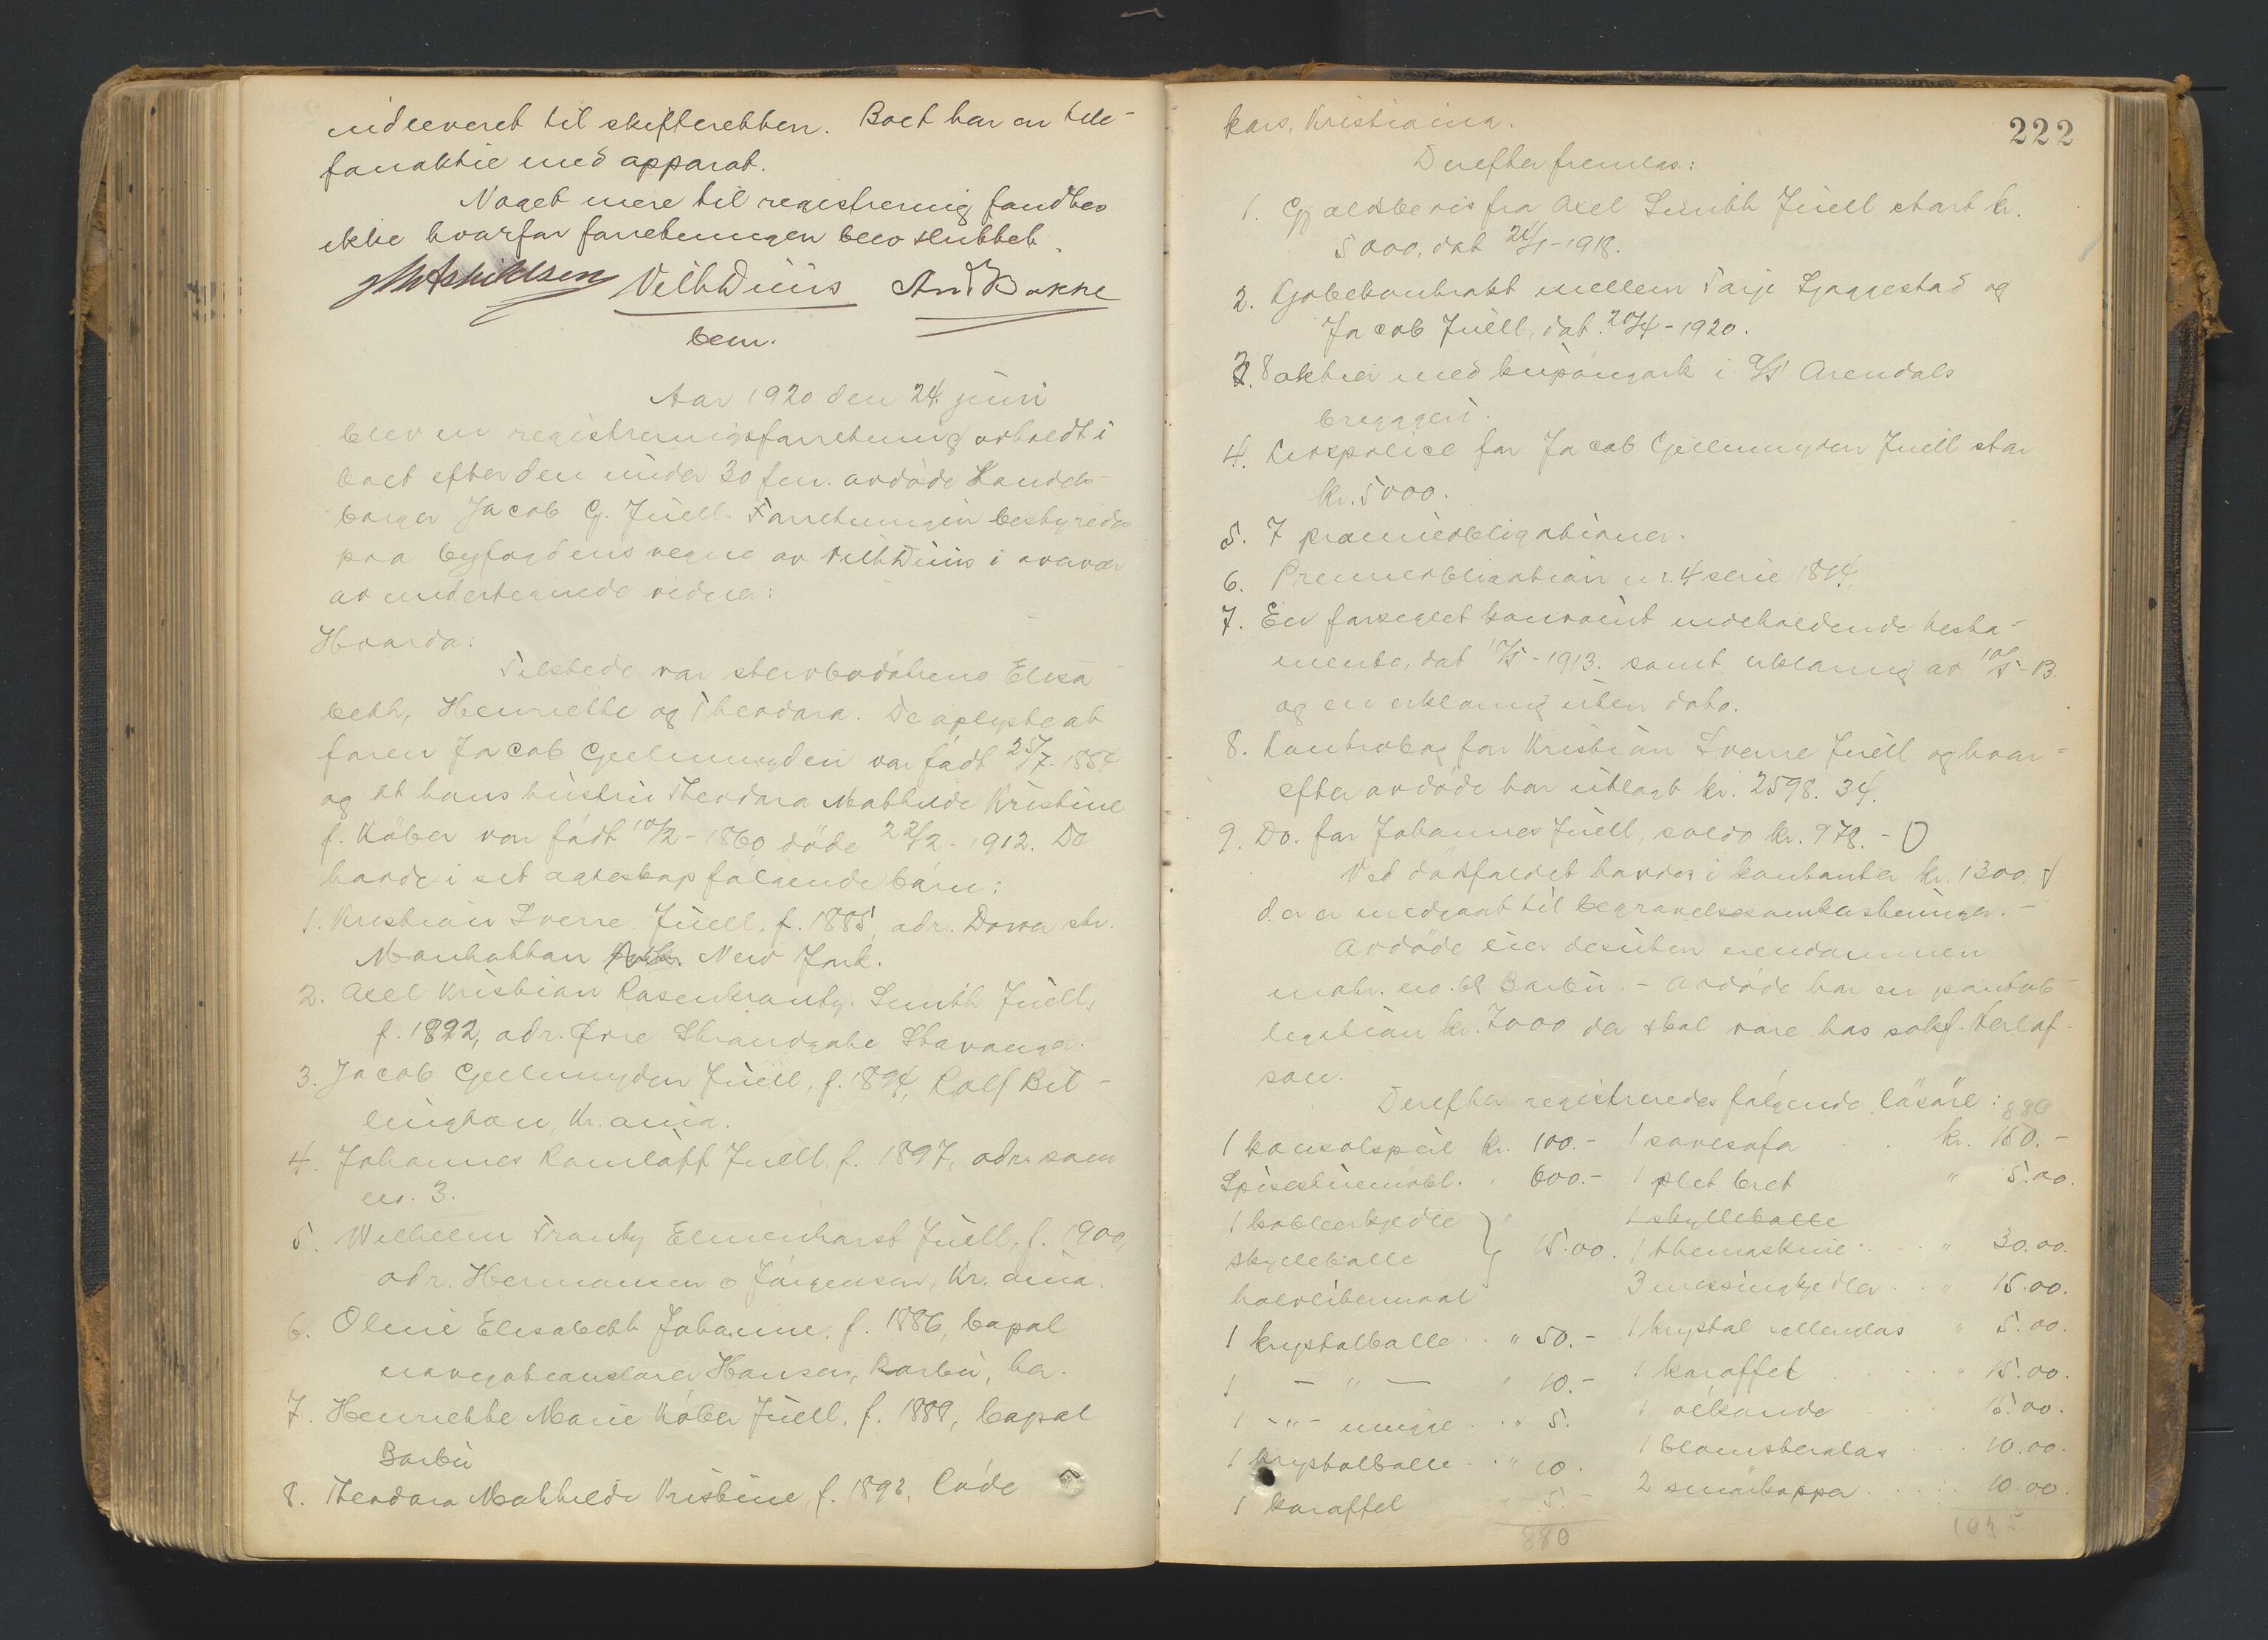 indleveret til skifteretten. Boet har en tele-
fonaktie med apparat.
Noget mere til registrering fandtes
ikke hvorfor forretningen blev sluttet.
VilhDuus And Bakke
bem.
Aar 1920 den 24. juni
blev en registreringsforretning avholdt i
boet efter den under 30 f.m. avdøde Handels-
borger Jacob G. Juell. Forretningen bestyredes
paa byfogdens vegne av VilhDuus i overvær
av undertegnede vidner:
Hvorda:
Tilstede var stervbodøtrene Elisa-
beth, Henriette og Theodora. De oplyste at
faren Jacob Gjelmuyden var født 25/7-1854
og at hans hustru Theodora Mathilde Kristine
f. Køber var født 10/2-1860 døde 22/2-1912. De
havde i sit ægteskap følgende børn:
1. Kristian Sverre Juell, f. 1885, adr. Dover str.
Manhattan New York.
2. Axel Kristian Rosenkrantz Smith Juell,
f. 1892, adr. Øvre Strandgate Stavanger.
3. Jacob Gjelmuyden Juell, f. 1894, Rolf
Kr.ania.
4. Johannes Ramløff Juell, f. 1897, adr. som
no. 3.
5. Wilhelm Frantz Elmenhorst Juell, f. 1900,
adr. Hermansen & Jørgensen, Kr.ania.
6. Oline Elisabeth Johanne, f. 1886, bopæl
Hansen, Barbu, her.
7. Henriette Marie Køber Juell, f. 1888, bopæl
Barbu
8. Theodora Mathilde Kristine, f. 1892, Code
222
kors, Kristiania.
Derefter fremlas:
1. Gjældsbevis fra Axel Smith Juell stort kr.
5000, dat 24/1-1918.
2. Kjøbekontrakt mellem Tarje Sjaggestad og
Jacob Juell, dat. 20/4-1920.
3. 8 aktier med kupongark i A/S Arendals
bryggeri.
4. Livspolice for Jacob Gjelmuyden Juell stor
kr. 5000.
5. 7 premieobligationer.
6. Premieobligation nr. 4 serie 1814.
7. En forseglet konvolut indeholdende testa-
mente, dat 10/5-1913. samt erklæring av 10/5-13.
og en erklæring uten dato.
8. Kontrabog for Kristian Sverre Juell og hvor-
efter avdøde har utlagt kr. 2598.34.
9. Do. for Johannes Juell, saldo kr. 978.-
Ved dødsfaldet havdes i kontanter kr. 1300.
der er medgaat til begravelsesomkostninger.-
Avdøde eier desuten eiendommen
matr. no. 68 Barbu.- Avdøde har en pantob-
ligation kr. 7000 der skal være hos sakf. Herlof-
son.
Derefter registreredes følgende løsøre: 880
1 konsolspeil kr. 100.- 1 sovesofa kr. 150.-
Spisestuemøbl. " 600.- 1 plet bret " 5.00.
1 kobberkjedle " 1 skylleballe
skylleballe } 15.00. 1 themaskine " 30.00.
halvlitermaal 3 messingkjedler " 15.00.
1 krystalballe " 50.- 1 krystal " 5.00.
1 - " - " 10.- 1 karaffel " 15.00.
1 -"- mugge " 5. 1 ølkande 15.00.
1 krystalballe " 10. 1 blomsterglas 10.00.
1 karaffel " 5.- 2 smørkopper 10.00.
880 1045